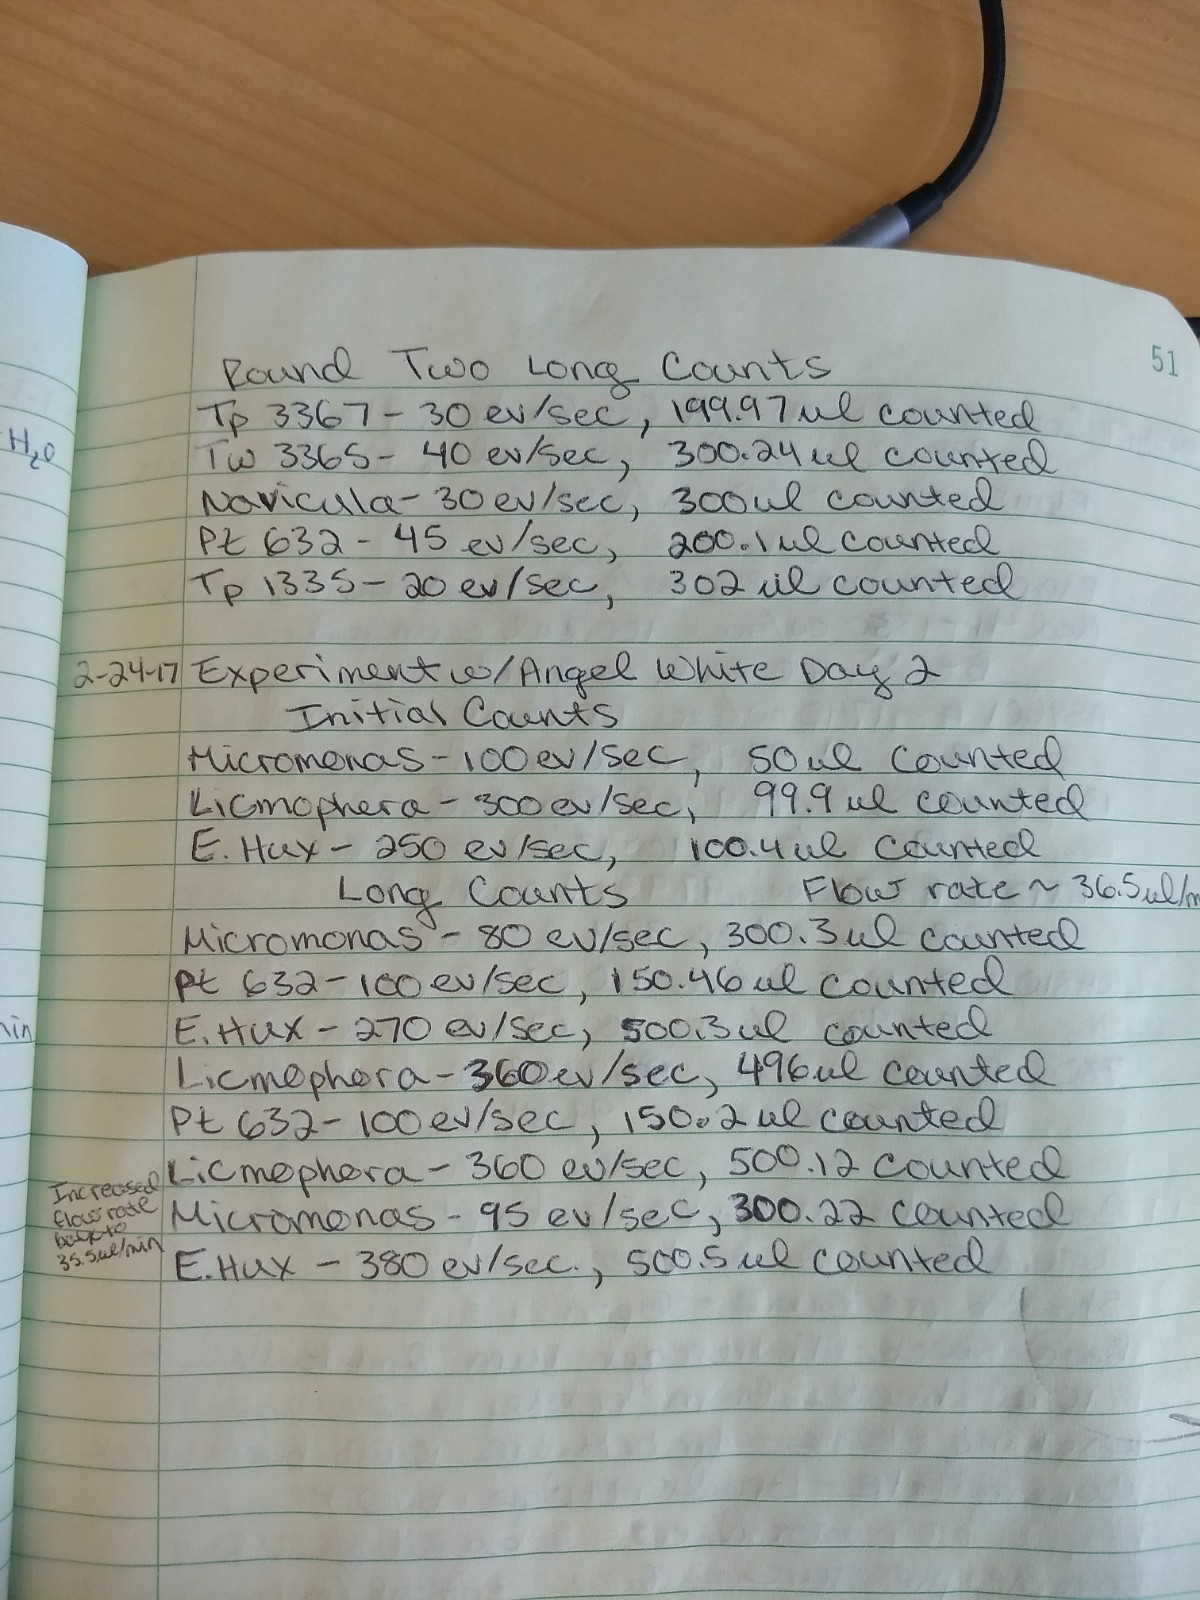 51
Round Two Long Counts
Tp 3367 - 30 ev/sec, 199.97 ul counted
H2O
Tw 3365 - 40 ev/sec, 300.24 ul counted
Navicula - 30 ev/sec, 300 ul counted
Pt 632 - 45 ev/sec, 200.1 ul counted
Tp 1335 - 20 ev/sec, 302 ul counted
2-24-17 Experiment w/ Angel White Day 2
Initial Counts
Micromonas - 100 ev/sec, 50 ul counted
Licmophera - 300 ev/sec, 99.9 ul counted
E. Hux - 250 ev/sec, 100.4 ul counted
Long Counts Flow rate ~ 36.5 ul/m
Micromonas - 80 ev/sec, 300.3 ul counted
Pt 632 - 100 ev/sec, 150.46 ul counted
E. Hux - 270 ev/sec, 500.3 ul counted
Licmophora - 360 ev/sec, 496 ul counted
Pt 632 - 100 ev/sec, 150.2 ul counted
Licmophora - 360 ev/sec, 500.12 counted
Micromonas - 95 ev/sec, 300.22 counted
E. Hux - 380 ev/sec., 500.5 ul counted
Increased
flow rate
back to
35.5 ul/min